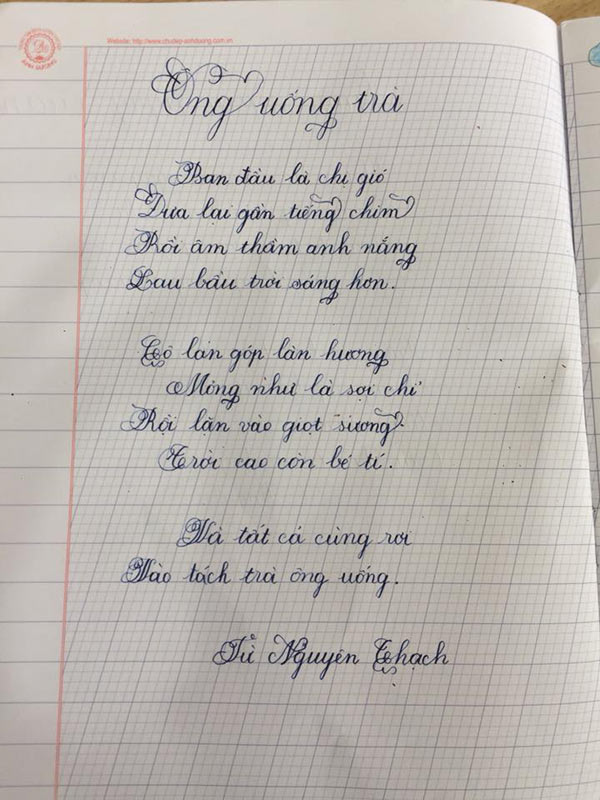 Website: http://www.chudep-anhduong.com.vn
ÁNH DƯƠNG
Ông uống trà
Ban đầu là chị gió
Đưa lại gần tiếng chim
Rồi âm thầm anh nắng
Lau bầu trời sáng hơn.
Cô lan góp làn hương
Mỏng như là sợi chỉ
Rồi lặn vào giọt sương
Trời cao còn bé tí.
Và tất cả cùng rơi
Vào tách trà ông uống.
Từ Nguyên Thạch